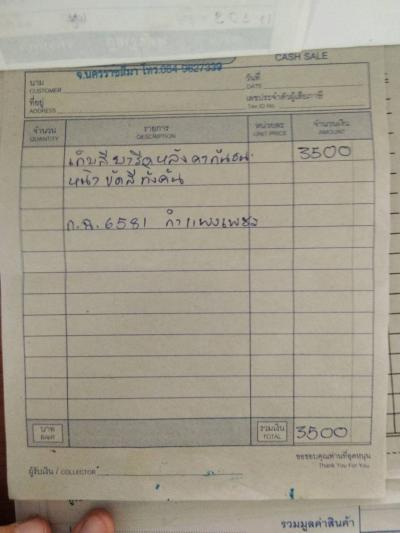 CASH SALE
จ.นครราชสีมา โทร.084-9627339
นาม
CUSTOMER
วันที่
DATE
ที่อยู่
ADDRESS
เลขประจำตัวผู้เสียภาษี
Tax ID No.
จำนวน
QUANTITY
รายการ
DESCRIPTION
หน่วยละ
UNIT PRICE
จำนวนเงิน
AMOUNT
เก็บสี หลังคา กันชน 3500
หน้า ขัดสี ทั้งคัน
6581 กำแพงเพชร
บาท
BAHT
รวมเงิน
TOTAL
3500
ขอขอบคุณท่านที่อุดหนุน
Thank You For You
ผู้รับเงิน / COLLECTOR
รวมมูลค่าสินค้า